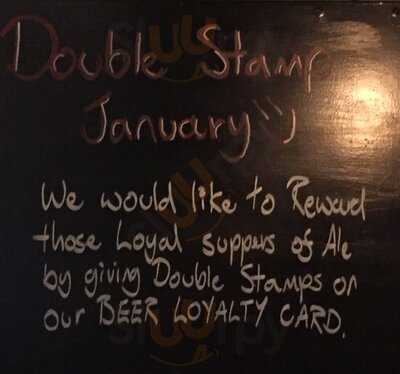 Double Stamp
January =)
We would like to Reward
those Loyal suppers of Ale
by giving Double Stamps on
our BEER LOYALTY CARD.